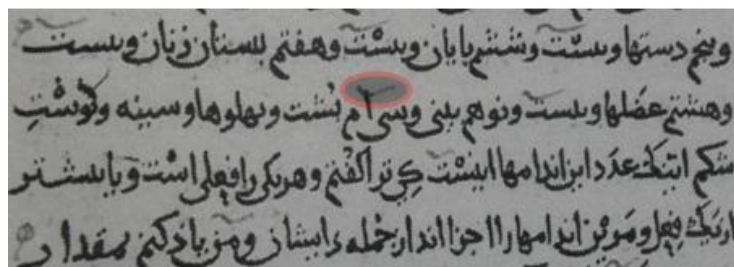 وپنجم دستها وبیست وششم پایان وبیست وهفتم پستان زنان وبیست
وهشتم عضلها وبیست ونوهم بینی وسی ام پشت وپهلوها وسینه وکوشت
شکم اینک عدد این اندامها اینست کی ترا کفتم وهر یکی را فعلی است ویا بیشتر
از یک فعل ومر این اندامها را اجزا اند از جمله ایشان ومن یاد کنم بمقدار